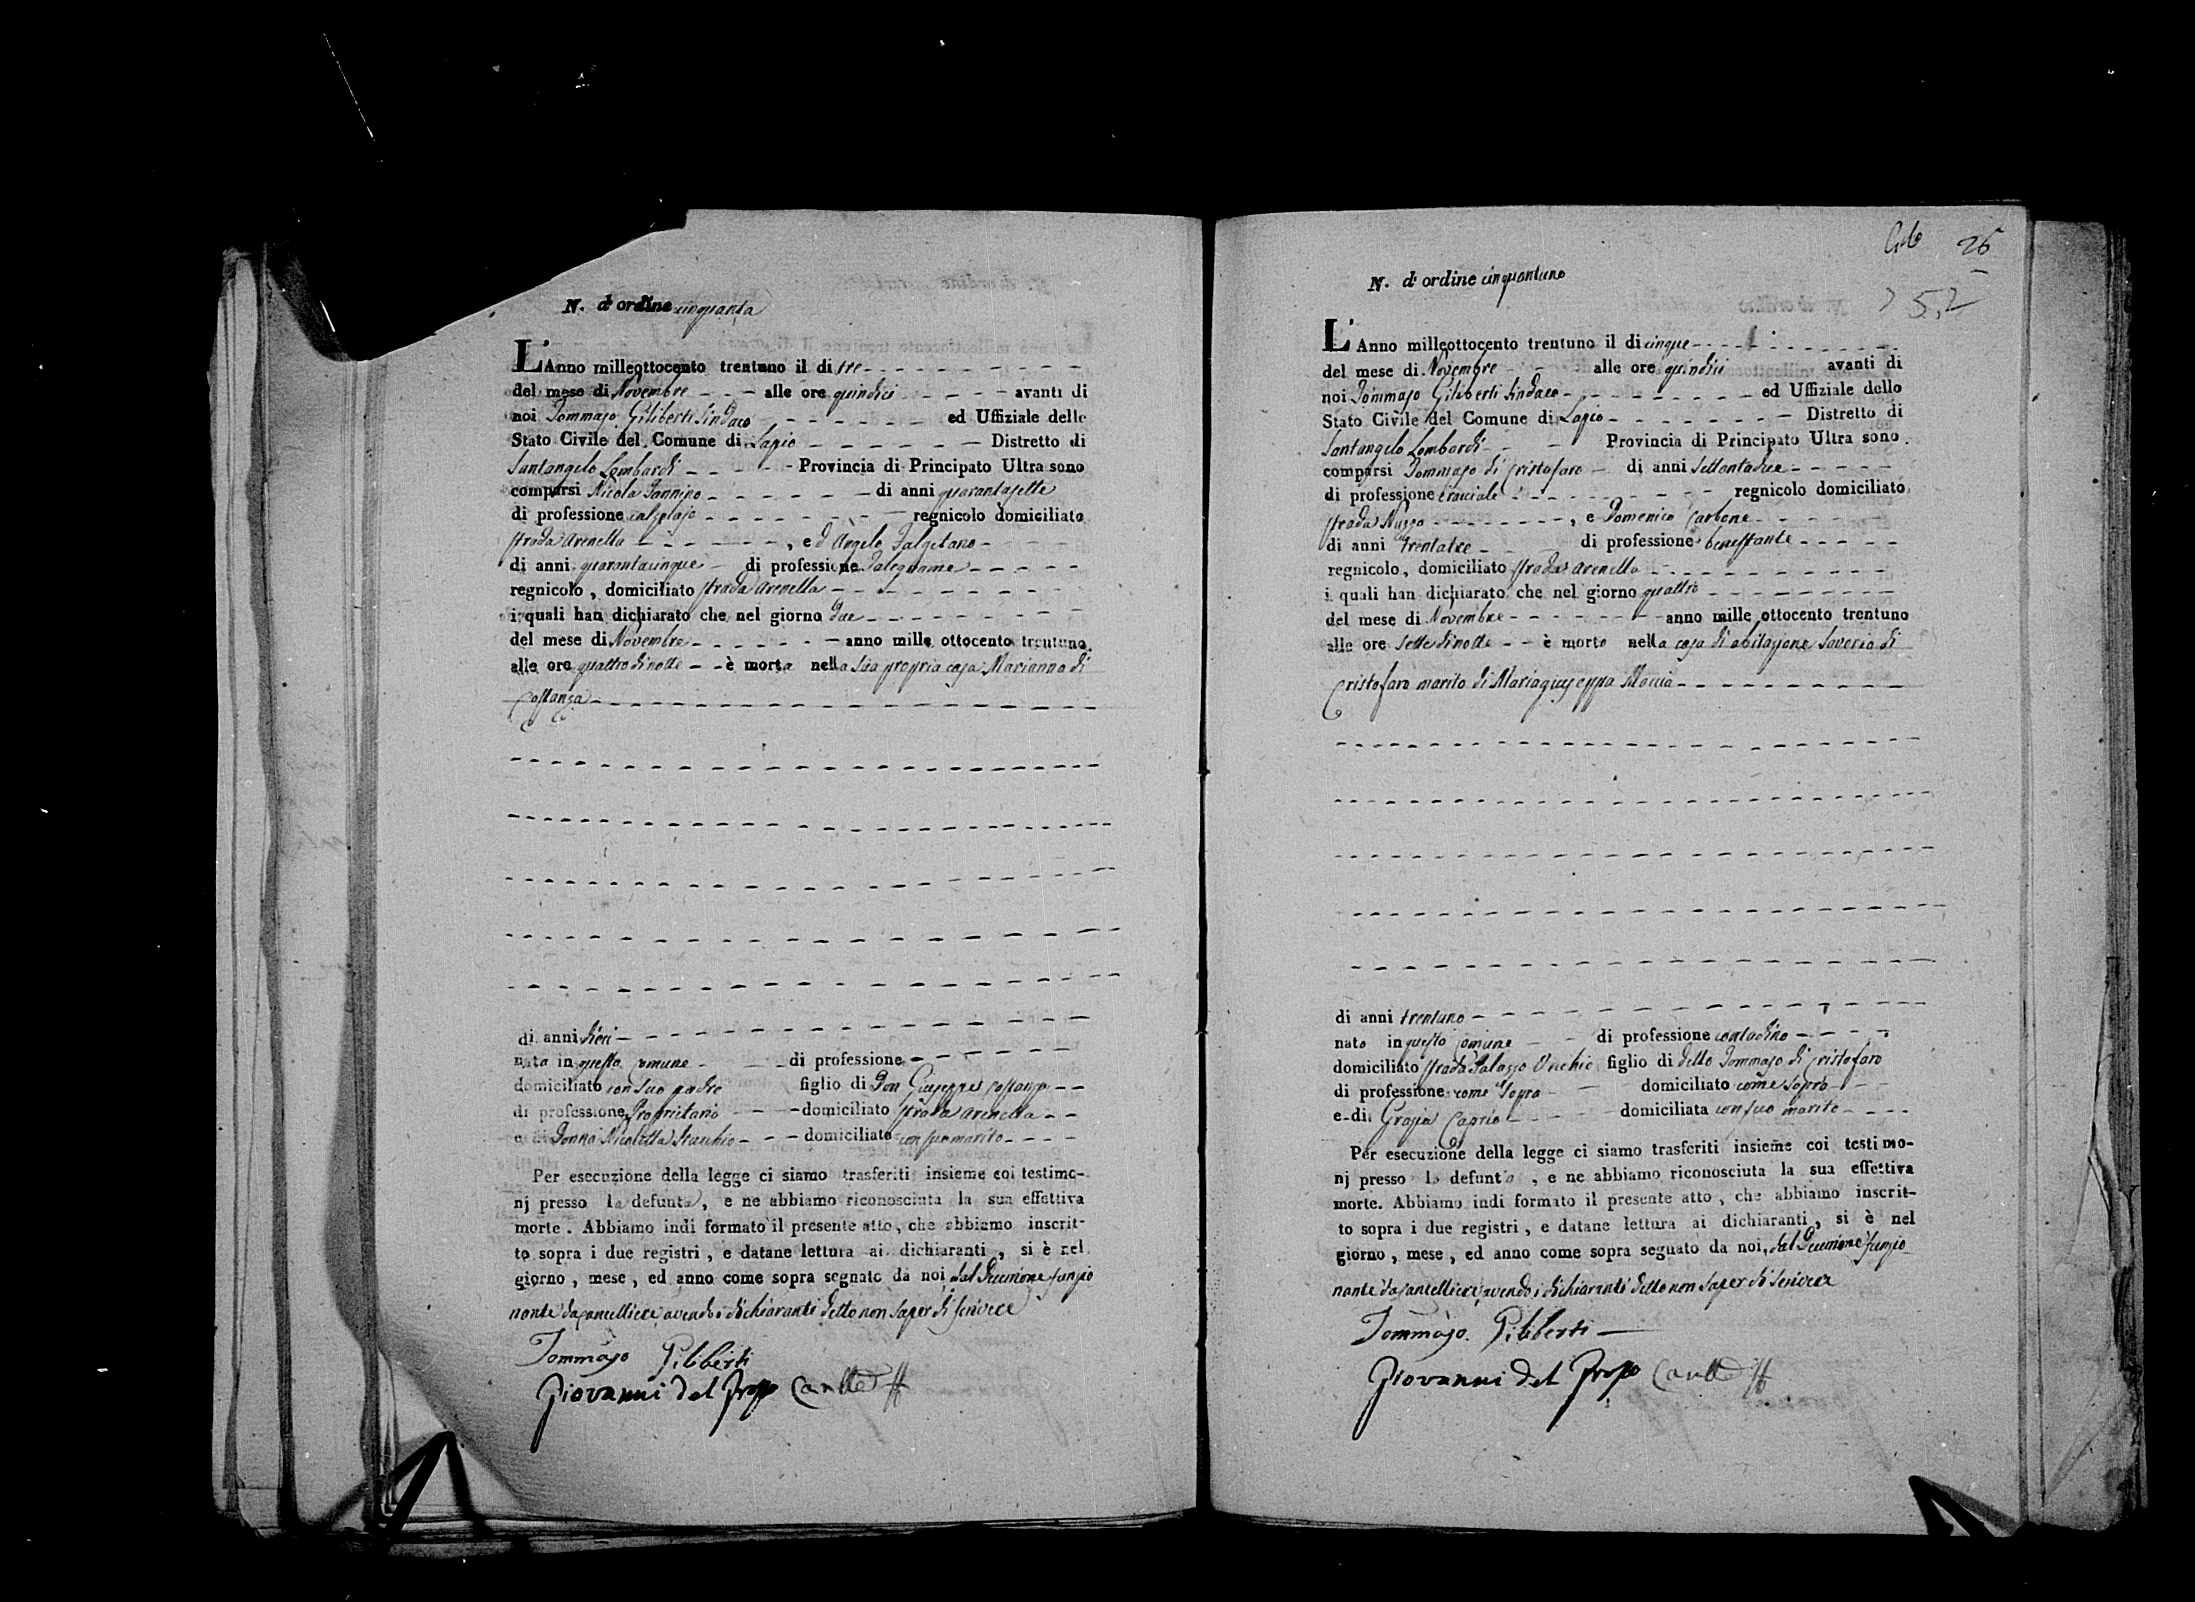 N. d'ordine cinquanta
L'Anno milleottocento trentuno il dì tre
del mese di Novembre alle ore quindici avanti di
noi Tommaso Giliberti Sindaco ed Uffiziale dello
Stato Civile del Comune di Lapio Distretto di
Santangelo Lombardi Provincia di Principato Ultra sono
comparsi Nicola Iannino di anni quarantasette
di professione calzolajo regnicolo domiciliato
strada Arenella , ed Angelo
di anni quarantacinque di professione Falegname
regnicolo , domiciliato strada Arenella
i quali han dichiarato che nel giorno due
del mese di Novembre anno mille ottocento trentuno
alle ore quattro di notte è morta nella sua propria casa Marianna di
Costanza
di anni dieci
nata in questo Comune di professione
domiciliato con suo padre figlio di Don Giuseppe Costanza
di professione Proprietario domiciliato strada Arenella
e di Donna Nicoletta domiciliata con suo marito
Per esecuzione della legge ci siamo trasferiti insieme coi testimo-
nj presso la defunta , e ne abbiamo riconosciuta la sua effettiva
morte . Abbiamo indi formato il presente atto , che abbiamo inscrit-
to sopra i due registri , e datane lettura ai dichiaranti , si è nel
giorno , mese , ed anno come sopra segnato da noi, dal Decurione funzio
nante da Cancelliere avendo i dichiaranti detto non saper di scrivere
Tommaso Giliberti
Giovanni del
26
52
N. d'ordine cinquantuno
L'Anno milleottocento trentuno il dì cinque
del mese di Novembre alle ore quindici avanti di
noi Tommaso Giliberti Sindaco ed Uffiziale dello
Stato Civile del Comune di Lapio Distretto di
Santangelo Lombardi Provincia di Principato Ultra sono
comparsi Tommaso di Cristofaro di anni settantadue
di professione regnicolo domiciliato
strada , e Domenico Carbone
di anni trentatre di professione benestante
regnicolo , domiciliato strada Arenella
i quali han dichiarato che nel giorno quattro
del mese di Novembre anno mille ottocento trentuno
alle ore sette di notte è morto nella casa di abitazione Saverio di
Cristofaro marito di Mariagiuseppa
di anni trentuno
nato in questo Comune di professione contadino
domiciliato strada Palazzo Vecchio figlio di detto Tommaso di Cristofaro
di professione come sopra domiciliato come sopra
e di Grazia Caprio domiciliata con suo marito
Per esecuzione della legge ci siamo trasferiti insieme coi testimo-
nj presso lo defunto , e ne abbiamo riconosciuta la sua effettiva
morte. Abbiamo indi formato il presente atto , che abbiamo inscrit-
to sopra i due registri , e datane lettura ai dichiaranti , si è nel
giorno , mese , ed anno come sopra segnato da noi, dal Decurione funzio
nante da Cancelliere, avendo i dichiaranti detto non saper di scrivere
Tommaso Giliberti
Giovanni del